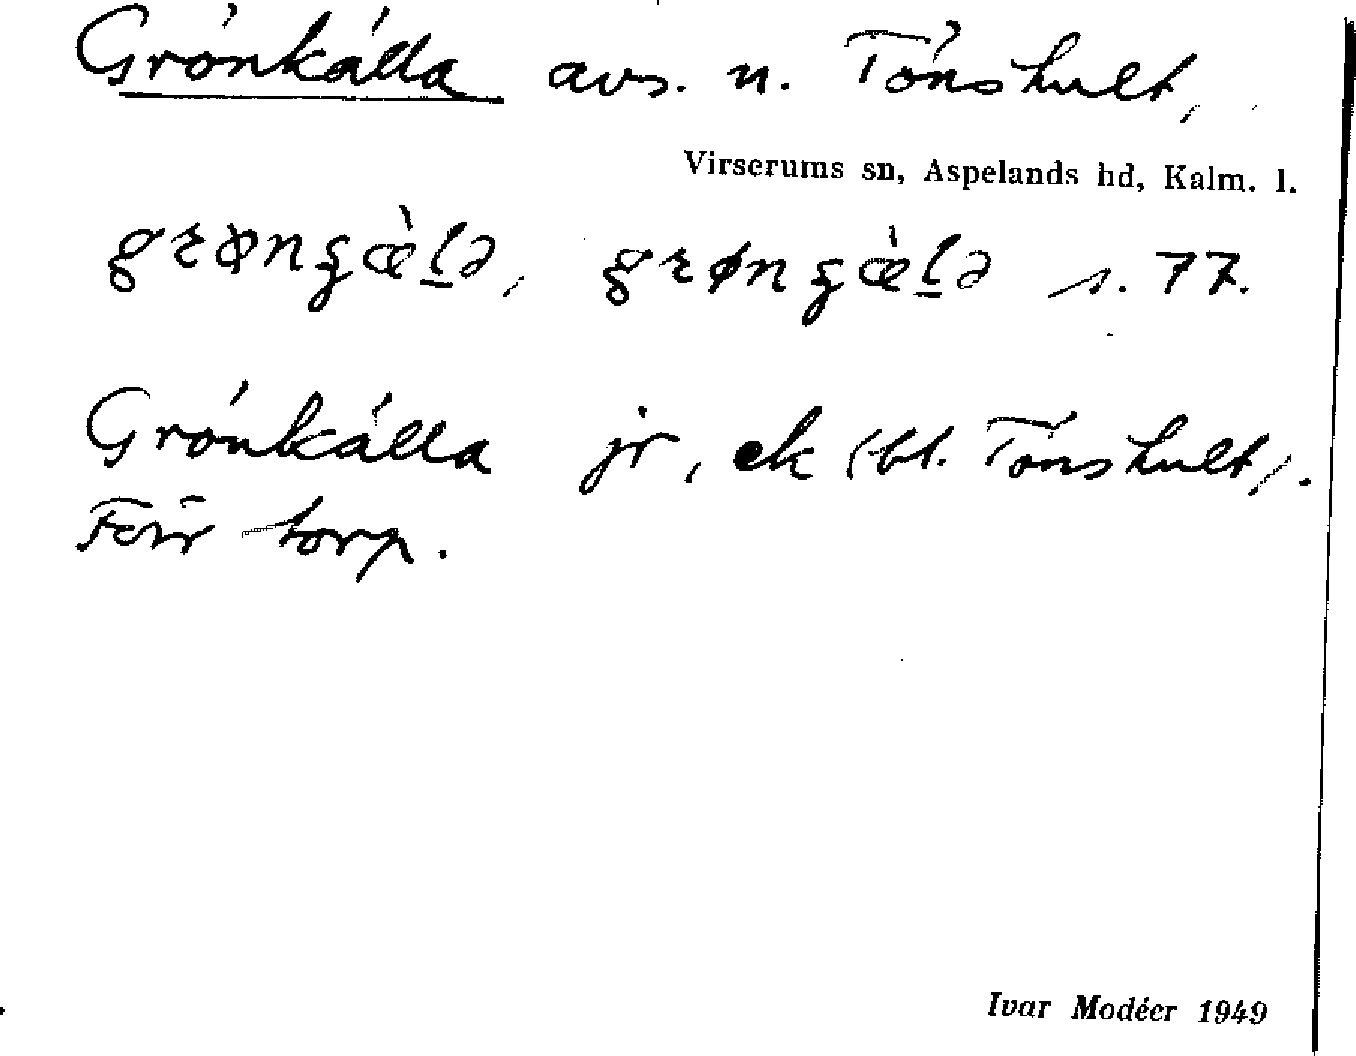 Grönkälla avs. n. Tönshult,
Virserums sn, Aspelands hd, Kalm. l.
s. 77.
Grönkälla jr, ek (bl. Tönshult).
Förr torp.
Ivar Modéer 1949